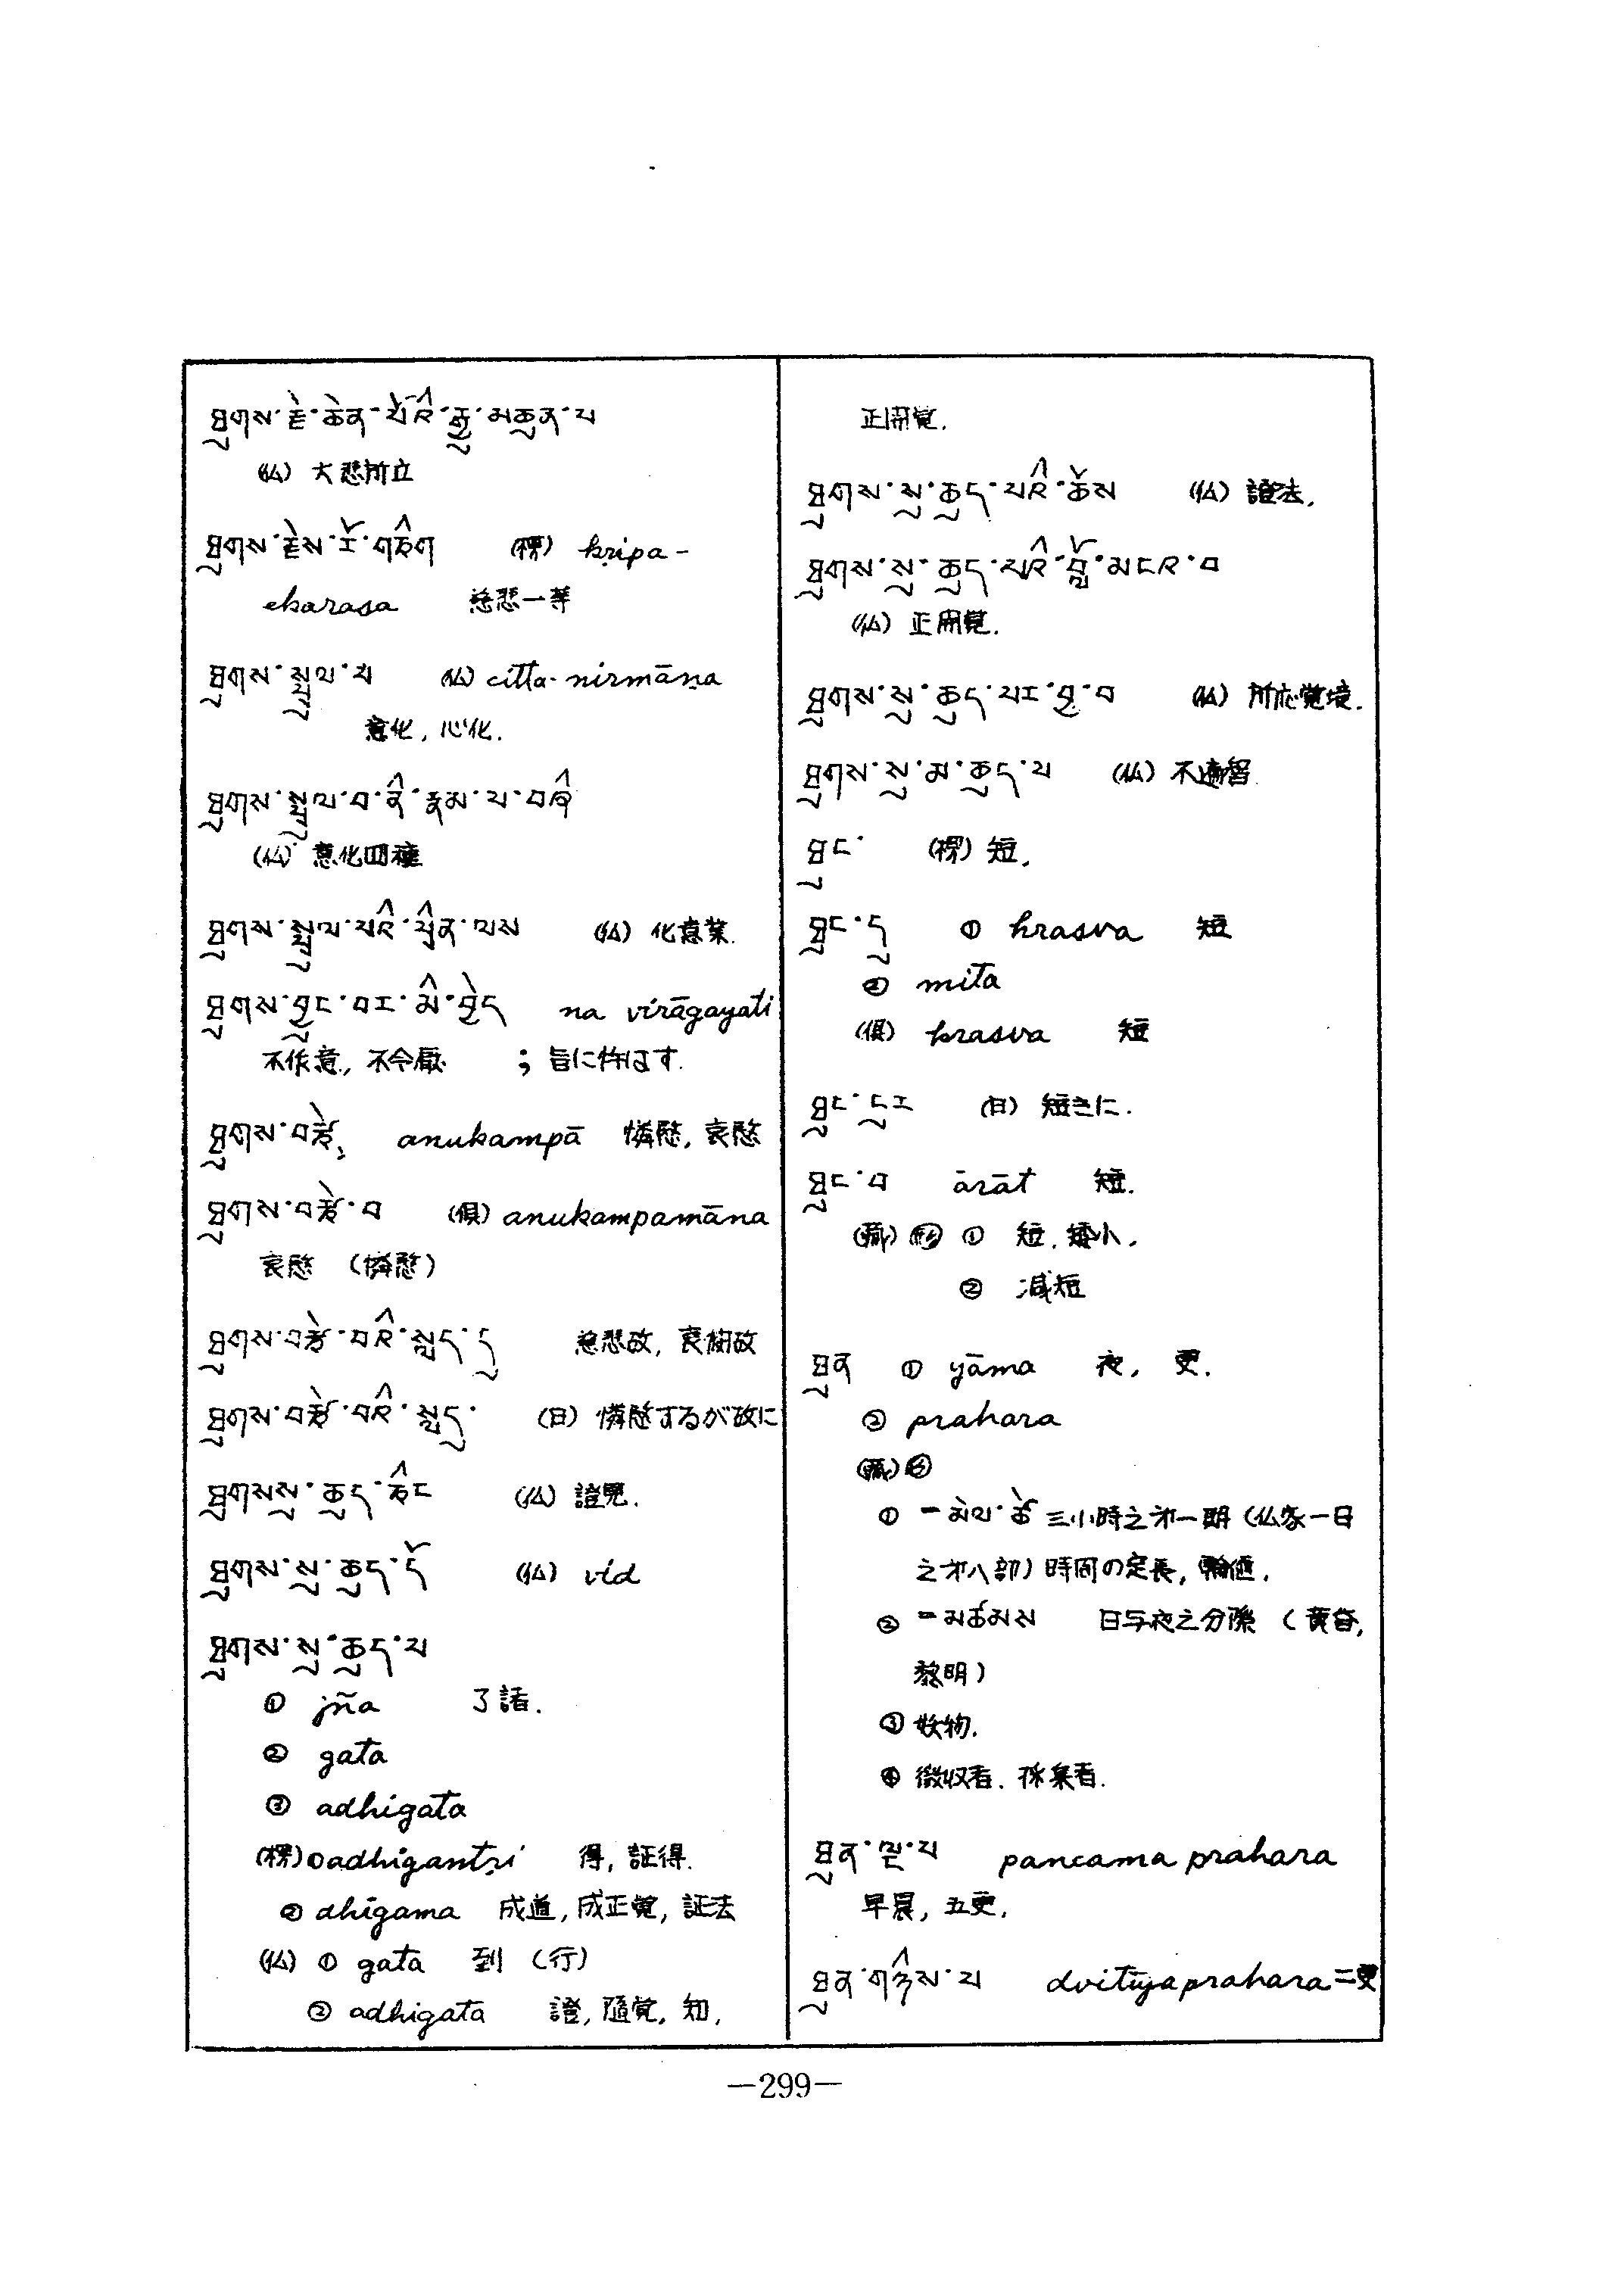 ཐུགས་རྗེ་ཆེན་པོའི་རྒྱུ་མཐུན་པ
(仏) 大悲所立
ཐུགས་རྗེས་རོ་གཅིག (楞) kṛipa-
ekarasa 慈悲一等
ཐུགས་སྤྲུལ་པ (仏) citta-nirmāṇa
意化, 心化.
ཐུགས་སྤྲུལ་བ་ནི་རྣམ་པ་བཞི
(仏) 意化四種
ཐུགས་སྤྲུལ་པའི་ཕྲིན་ལས (仏) 化意業.
ཐུགས་བྱུང་བར་མི་བྱེད na virāgayati
不作意, 不令厭 ; 旨に忤はす.
ཐུགས་བརྩེ anukampā 憐愍, 哀愍
ཐུགས་བརྩེ་བ (倶) anukampamāna
哀愍 (憐愍)
ཐུགས་བརྩེ་བའི་སླད་དུ 慈悲故, 哀愍故
ཐུགས་བརྩེ་བའི་སླད་ (日) 憐愍するが故に
ཐུགས་སུ་ཆུད་ཅིང (仏) 證覺.
ཐུགས་སུ་ཆུད་དོ (仏) vid
ཐུགས་སུ་ཆུད་པ
① jña 了語.
② gata
③ adhigata
(楞) ① adhigantṛi 得, 証得.
② dhigama 成道, 成正覚, 証法
(仏) ① gata 到 (行)
② adhigata 證, 隨覚, 知,
正開覚.
ཐུགས་སུ་ཆུད་པའི་ཆོས (仏) 證法.
ཐུགས་སུ་ཆུད་པའི་བློ་མངའ་བ
(仏) 正開覚.
ཐུགས་སུ་ཆུད་པར་བྱ་བ (仏) 所応覚境.
ཐུགས་སུ་མ་ཆུད་པ (仏) 不遍智.
ཐུང་ (楞) 短.
ཐུང་དུ ① hrasva 短
② mita
(倶) hrasva 短
ཐུང་ངུར (日) 短きに.
ཐུང་བ ārāt 短.
(蔵) ㊊ ① 短, 矮小.
② 減短
ཐུན ① yāma 夜, 更.
② prahara
(蔵)
① ーམེལ་ཚེ 三小時之第一期 (仏家一日
之第八部) 時間の定長, 輪値.
② ーམཚམས 日与夜之分際 (黄昏,
黎明)
③ 妖物.
④ 徴収者. 採集者.
ཐུན་ལྔ་པ pancama prahara
早晨, 五更.
ཐུན་གཉིས་པ dvitīya prahara 二更
—299—